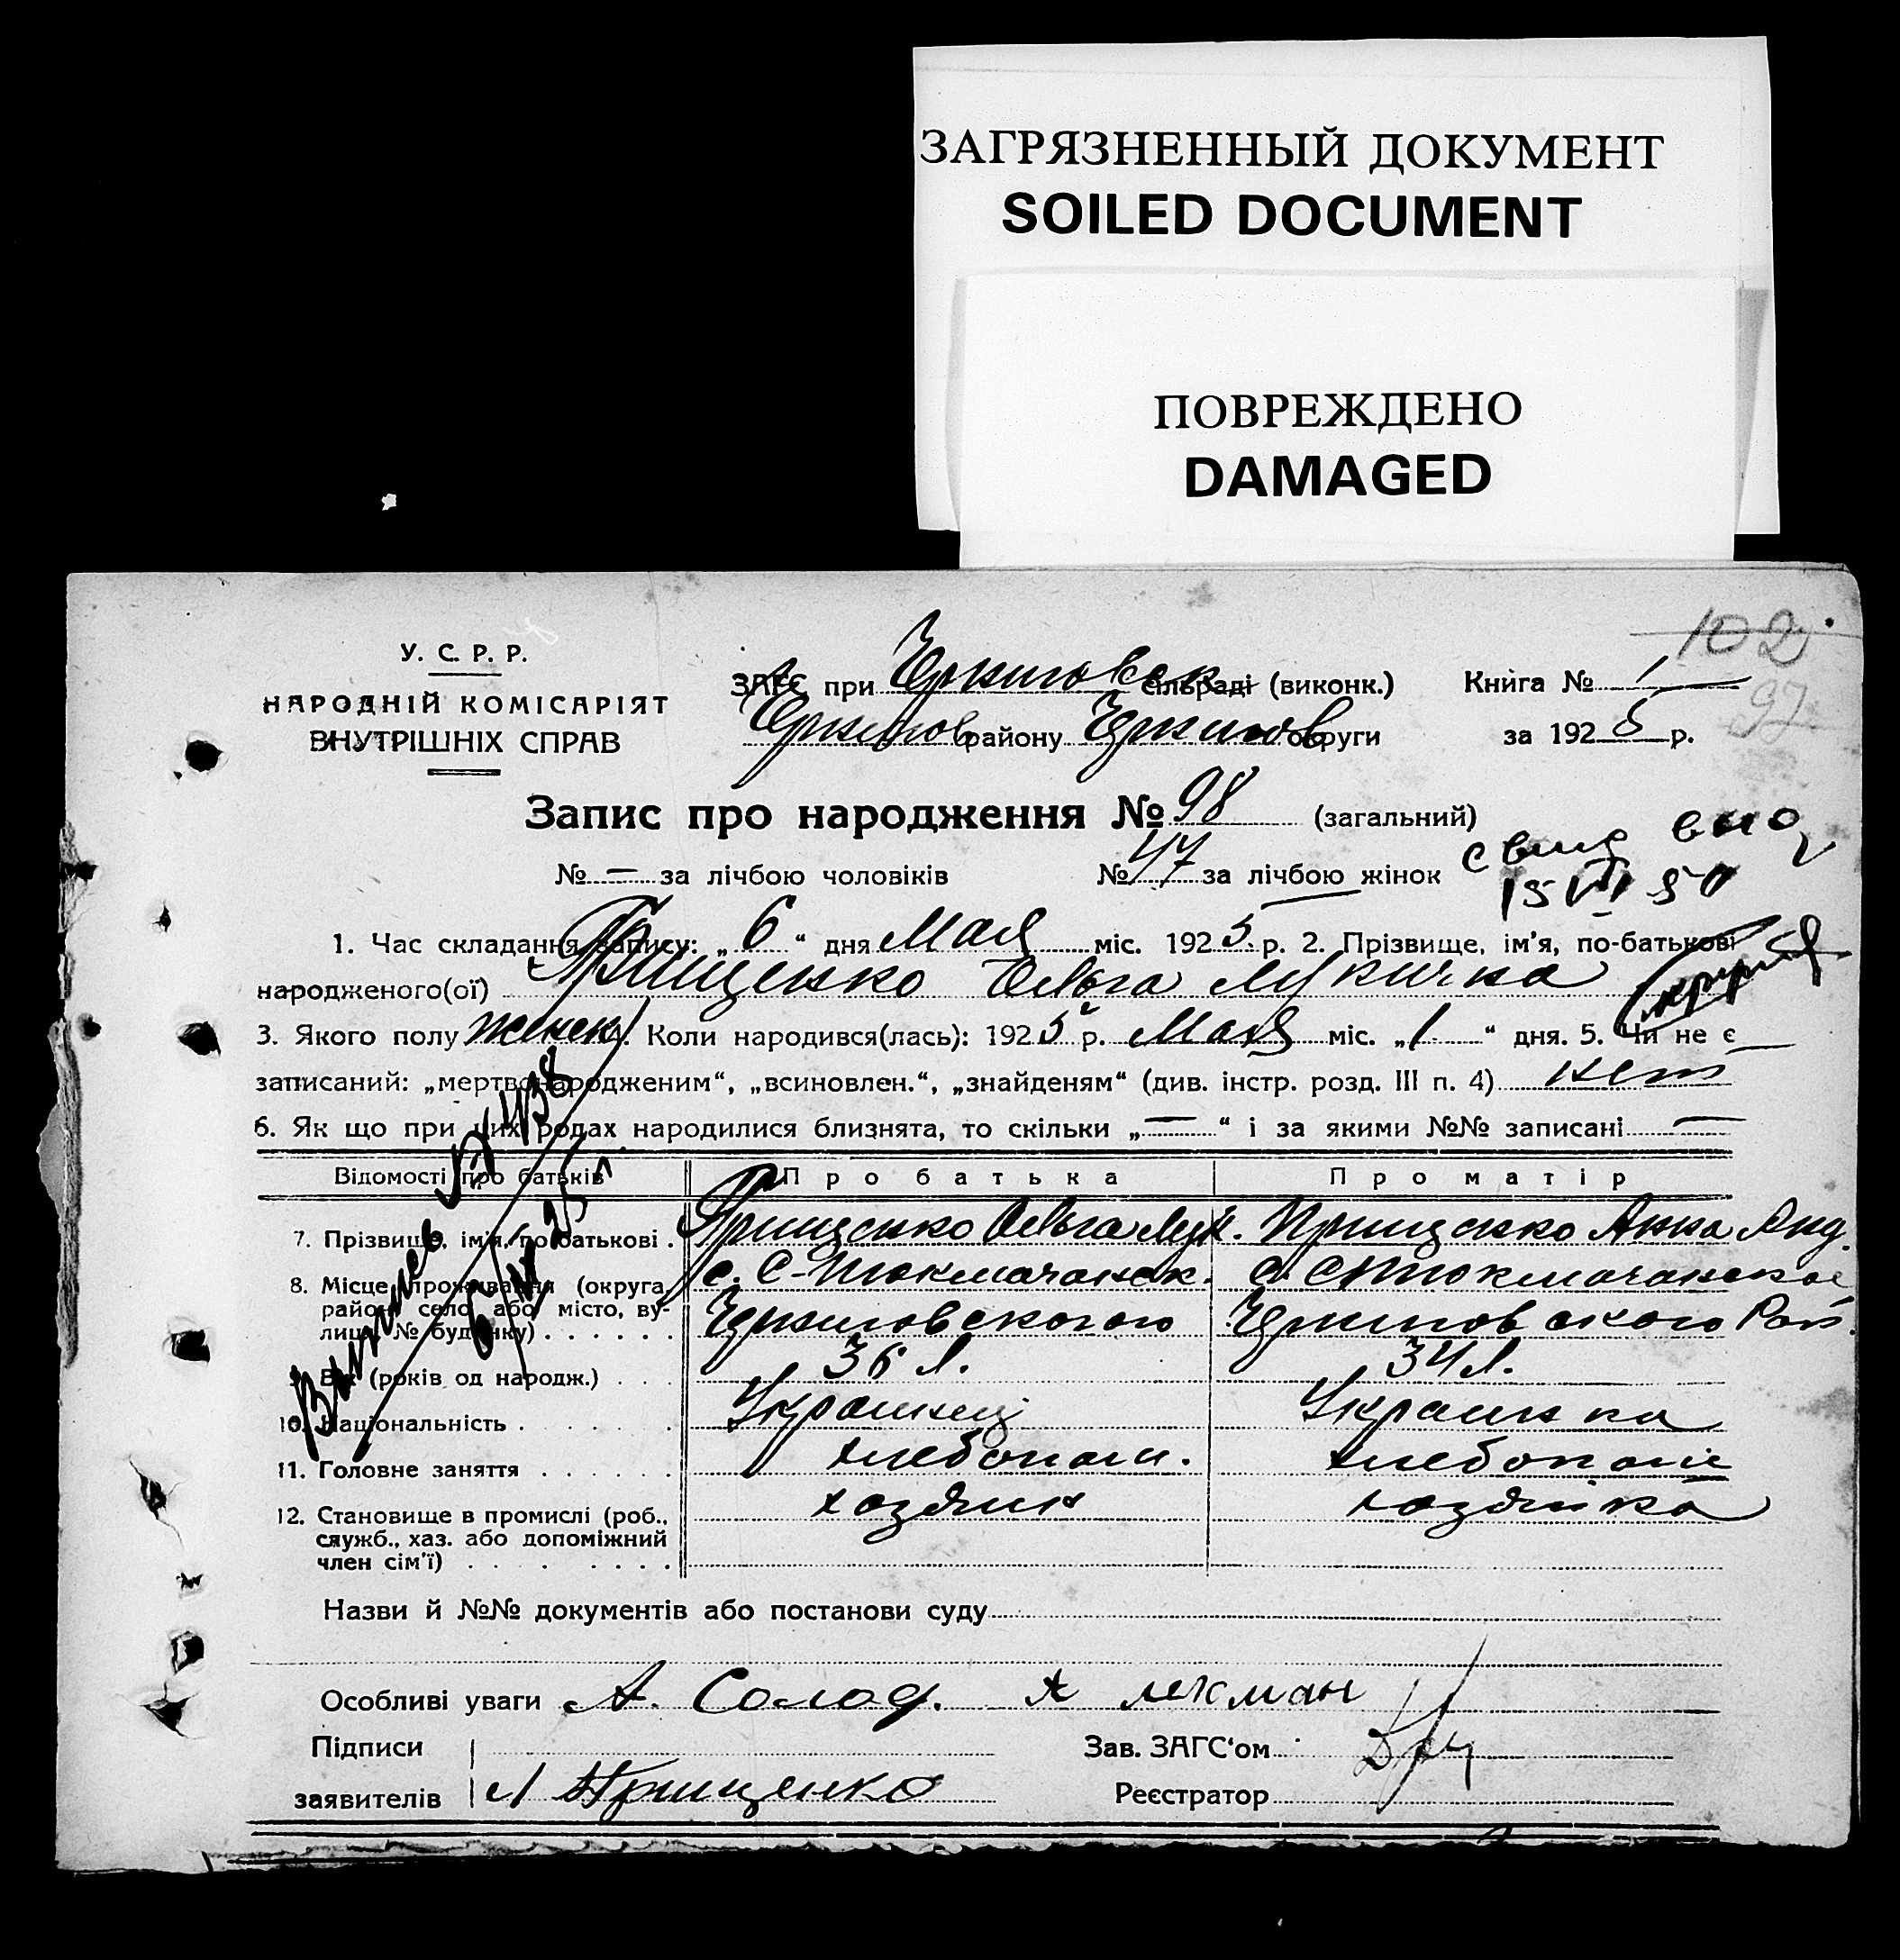 ЗАГРЯЗНЕННЫЙ ДОКУМЕНТ
SOILED DOCUMENT
ПОВРЕЖДЕНО
DAMAGED
102
97
У. С. Р. Р.
НАРОДНІЙ КОМІСАРІЯТ
ВНУТРІШНІХ СПРАВ
ЗАГС при сільраді (виконк.)
району округи
Книга № 1
за 1925 р.
Запис про народження № 98 (загальний)
№ — за лічбою чоловіків № 47 за лічбою жінок
1. Час складання запису: „6“ дня Мая міс. 1925 р. 2. Прізвище, ім'я, по-батькові
народженого(ої) Грищенко Ольга Лукична
3. Якого полу женск. Коли народився(лась): 1925 р. Мая міс. „1“ дня. 5. Чи не є
записаний: „мертвонародженим“, „всиновлен.“, „знайденям“ (див. інстр. розд. III п. 4) нет
6. Як що при цих родах народилися близнята, то скільки „—“ і за якими №№ записані —
Відомості про батьків Про батька Про матір
7. Прізвище, ім'я, по-батькові . Грищенко Ольга Лук. Грищенко Анна Анд.
8. Місце проживання (округа,
район, село, або місто, ву-
лиця, № будинку) . . . . . .
9. Вік (років од народж.) . . . 36 л. 34 л.
10. Національність . . . . Украинец Украинка
11. Головне заняття . . . . . . хлебопаш.
12. Становище в промислі (роб., хозяин хозяйка
служб., хаз. або допоміжний
член сім'ї) . . . . . . . .
Назви й №№ документів або постанови суду
Особливі уваги А. Солод.
Підписи
заявителів Л Грищенко
Зав. ЗАГС'ом
Реєстратор